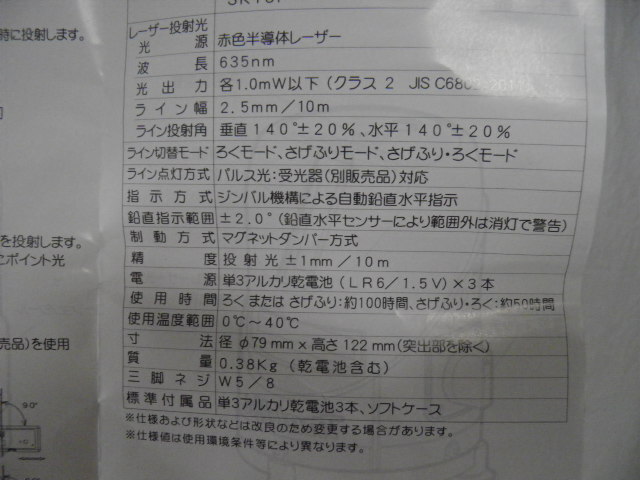 時に投射します。
レーザー投射光
光源 赤色半導体レーザー
波長 635nm
光出力 各1.0mW以下(クラス 2 JIS C680
ライン幅 2.5mm/10m
ライン投射角 垂直140°±20%、水平140°±20%
ライン切替モード ろくモード、さげふりモード、さげふり・ろくモード
ライン点灯方式 パルス光:受光器(別販売品)対応
指示方式 ジンバル機構による自動鉛直水平指示
鉛直指示範囲 ±2.0°(鉛直水平センサーにより範囲外は消灯で警告)
を投射します。
制動方式 マグネットダンパー方式
こポイント光
精度 投射光±1mm/10m
電源 単3アルカリ乾電池(LR6/1.5V)×3本
使用時間 ろく または さげふり:約100時間、さげふり・ろく:約50時間
使用温度範囲 0℃~40℃
売品)を使用
寸法 径 φ79mm x 高さ122mm(突出部を除く)
質量 0.38Kg(乾電池含む)
三脚ネジ W5/8
標準付属品 単3アルカリ乾電池3本、ソフトケース
90°
※仕様および形状などは改良のため変更する場合があります。
※仕様値は使用環境条件等により異なります。